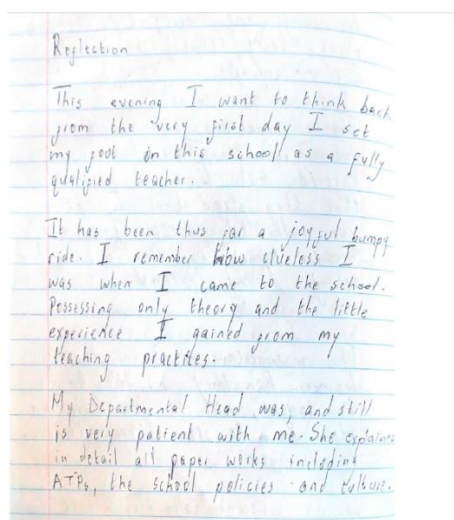 Reflection
This evening I want to think back
from the very first day I set
my foot in this school as a fully
qualified teacher.
It has been thus far a joyful bumpy
ride. I remember how clueless I
was when I came to the school.
Possessing only theory and the little
experience I gained from my
teaching practices.
My Departmental Head was, and still
is very patient with me. She explained
in detail all paper works including
ATPs, the school policies and culture.